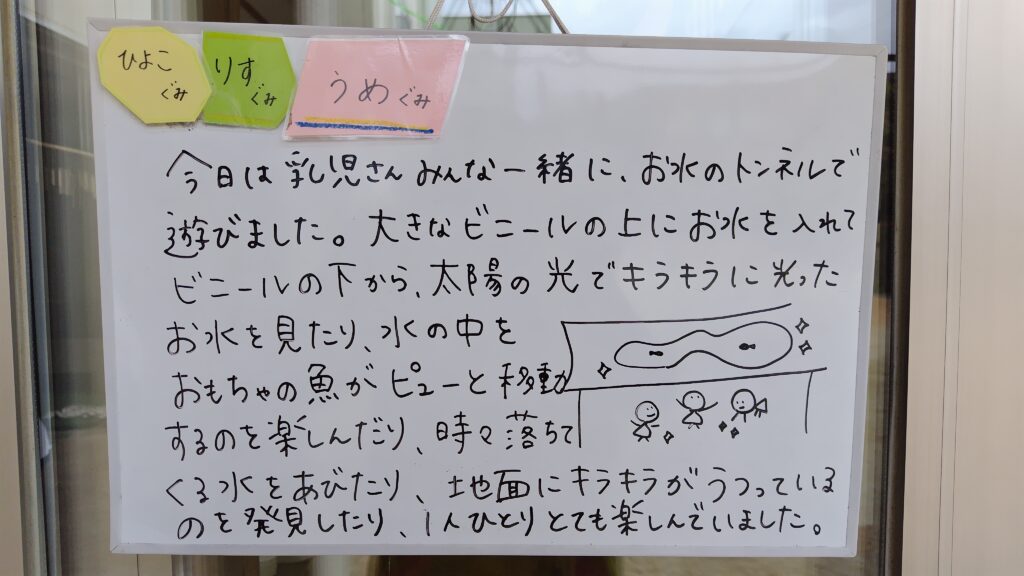 ひよこぐみ
りすぐみ
うめぐみ
今日は乳児さんみんな一緒に、お水のトンネルで
遊びました。大きなビニールの上にお水を入れて
ビニールの下から、太陽の光でキラキラに光った
お水を見たり、水の中を
おもちゃの魚がピューと移動
するのを楽しんだり、時々落ちて
くる水をあびたり、地面にキラキラがうつっている
のを発見したり、1人ひとりとても楽しんでいました。